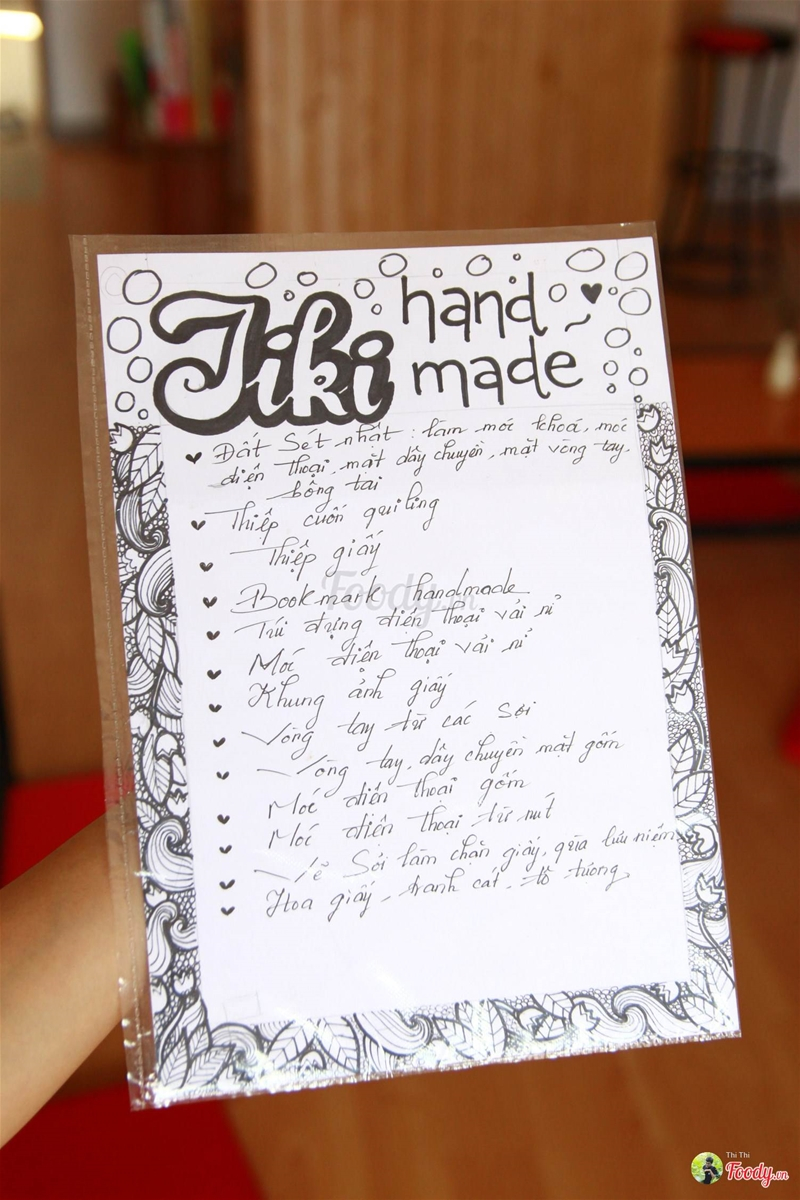 Jiki
hand
made
Đất Sét nhật : làm móc khoá, móc
điện thoại, mặt dây chuyền, mặt vòng tay.
bông tai
Thiệp cuốn quiling
Thiệp giấy
Bookmark handmade
Túi đựng điện thoại vải nỉ
Móc điện thoại vải nỉ
Khung ảnh giấy
Vòng tay từ các sợi
Vòng tay, dây chuyền mặt gốm
Móc điện thoại gốm
Móc điện thoại từ nút
Vẽ Sỏi làm chặn giấy, qùa lưu niệm
Hoa giấy, tranh cát, tô tượng
Foody.vn
Thi Thi
Foody.vn